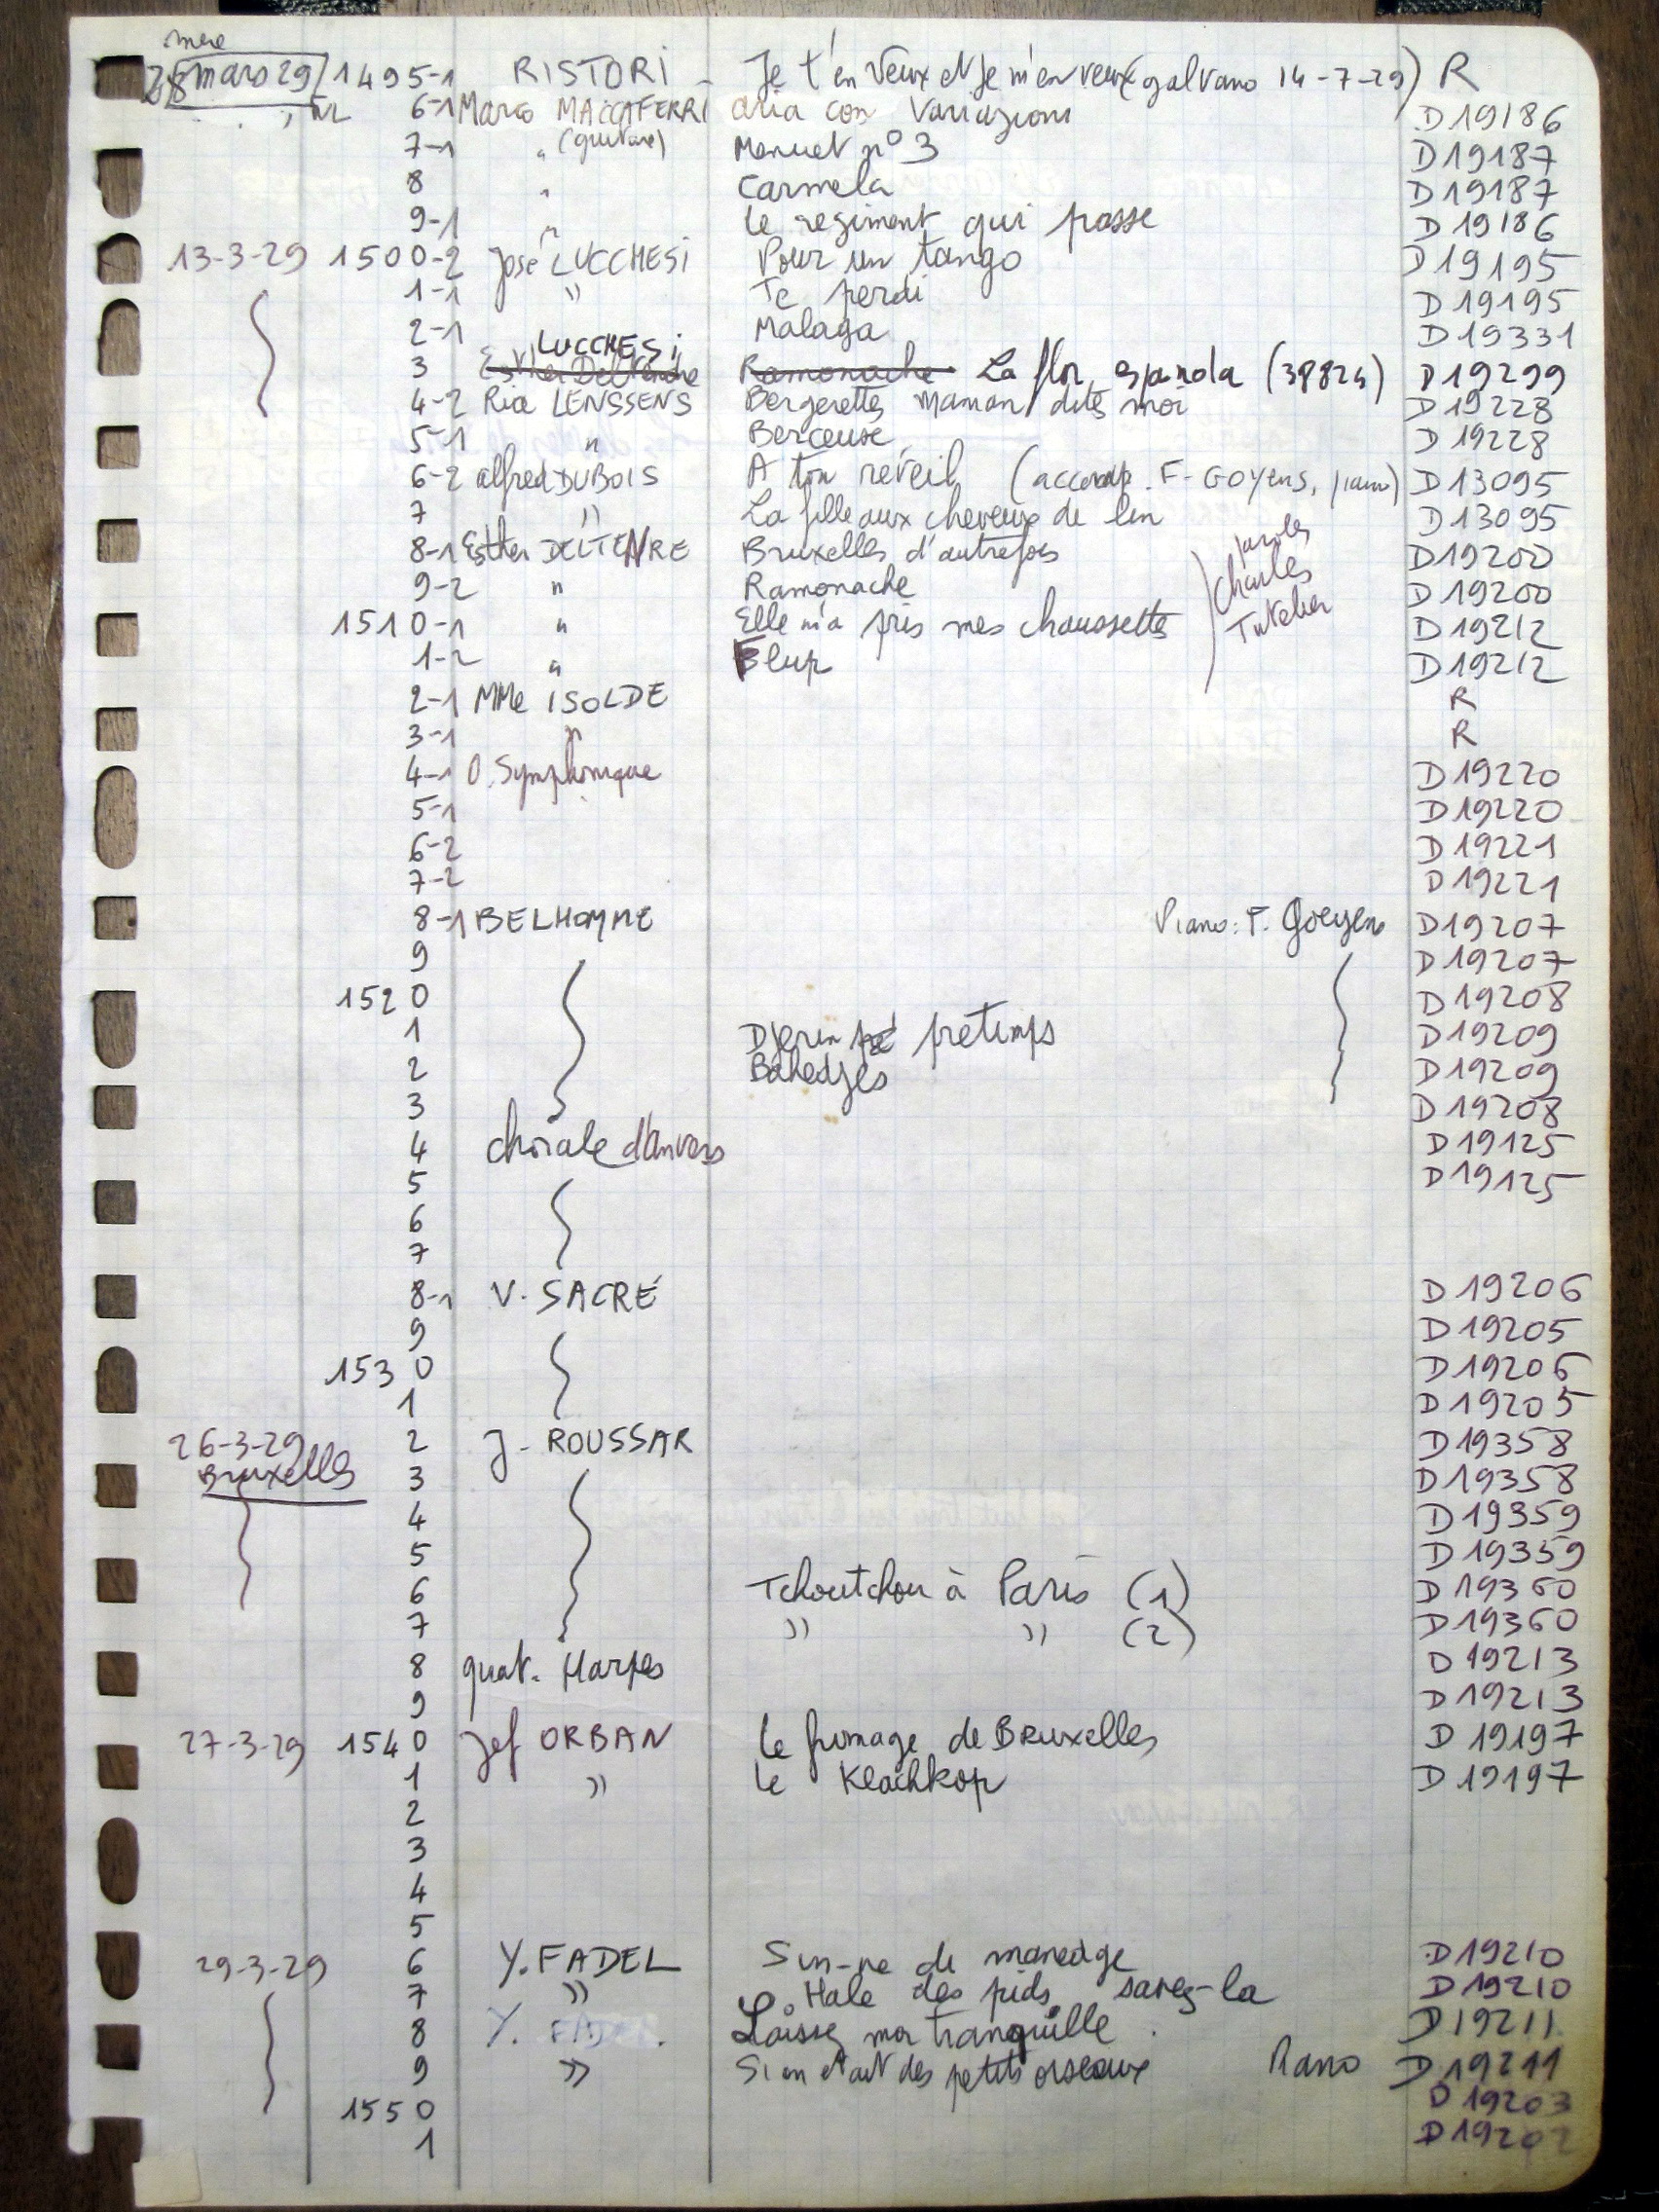 mere
28 mars 29 1495-1 RISTORI - Je t'en veux et je m'en veux (galvano 14-7-29) R
6-1 Mario MACCAFERRI aria con variazioni D19186
7-1 " (guitare) Menuet n° 3 D19187
8 " Carmela D19187
9-1 " Le regiment qui passe D19186
13-3-29 1500-2 José LUCCHESI Pour un tango D19195
1-1 " Te perdi D19195
2-1 Malaga D19331
LUCCHESi
3 Esther Deltenre Ramonache La flor espanola (38824) D19299
4-2 Rice LENSSENS Bergerettes maman dites moi D19228
5-1 " Berceuse D19228
6-2 alfred DUBOIS A ton réveil (accomp. F. GOYENS, piano) D13095
7 " La fille aux cheveux de lin D13095
8-1 Esther DELTENRE Bruxelles d'autrefois paroles D19200
9-2 " Ramonache Charles D19200
1510-1 " Elle m'a pris mes chaussettes Tutelier D19212
1-2 " Flup D19212
2-1 MMe ISOLDE R
3-1 " R
4-1 O. Symphonique D19220
5-1 D19220
6-2 D19221
7-2 D19221
8-1 BELHOMME Piano: F. Goeyens D19207
9 D19207
1520 D19208
1 Djerin pretimps D19209
2 Bahedjes D19209
3 D19208
4 chorale d'Anvers D19125
5 D19125
6
7
8-1 V. SACRÉ D19206
9 D19205
1530 D19206
1 D19205
26-3-29 2 J. ROUSSAR D19358
Bruxelles 3 D19358
4 D19359
5 D19359
6 Tchoutchou à Paris (1) D19360
7 " " (2) D19360
8 quat. Harpes D19213
9 D19213
27-3-29 1540 Jef ORBAN Le fromage de Bruxelles D19197
1 " Le Klachkop D19197
2
3
4
5
29-3-29 6 Y. FADEL Sin-ne de manedge D19210
7 " Hale des pids savez-la D19210
8 Y. FADEL. Laisse moi tranquille D19211
9 " Si on etait des petits oiseaux Piano D19211
1550 D19203
1 D19202